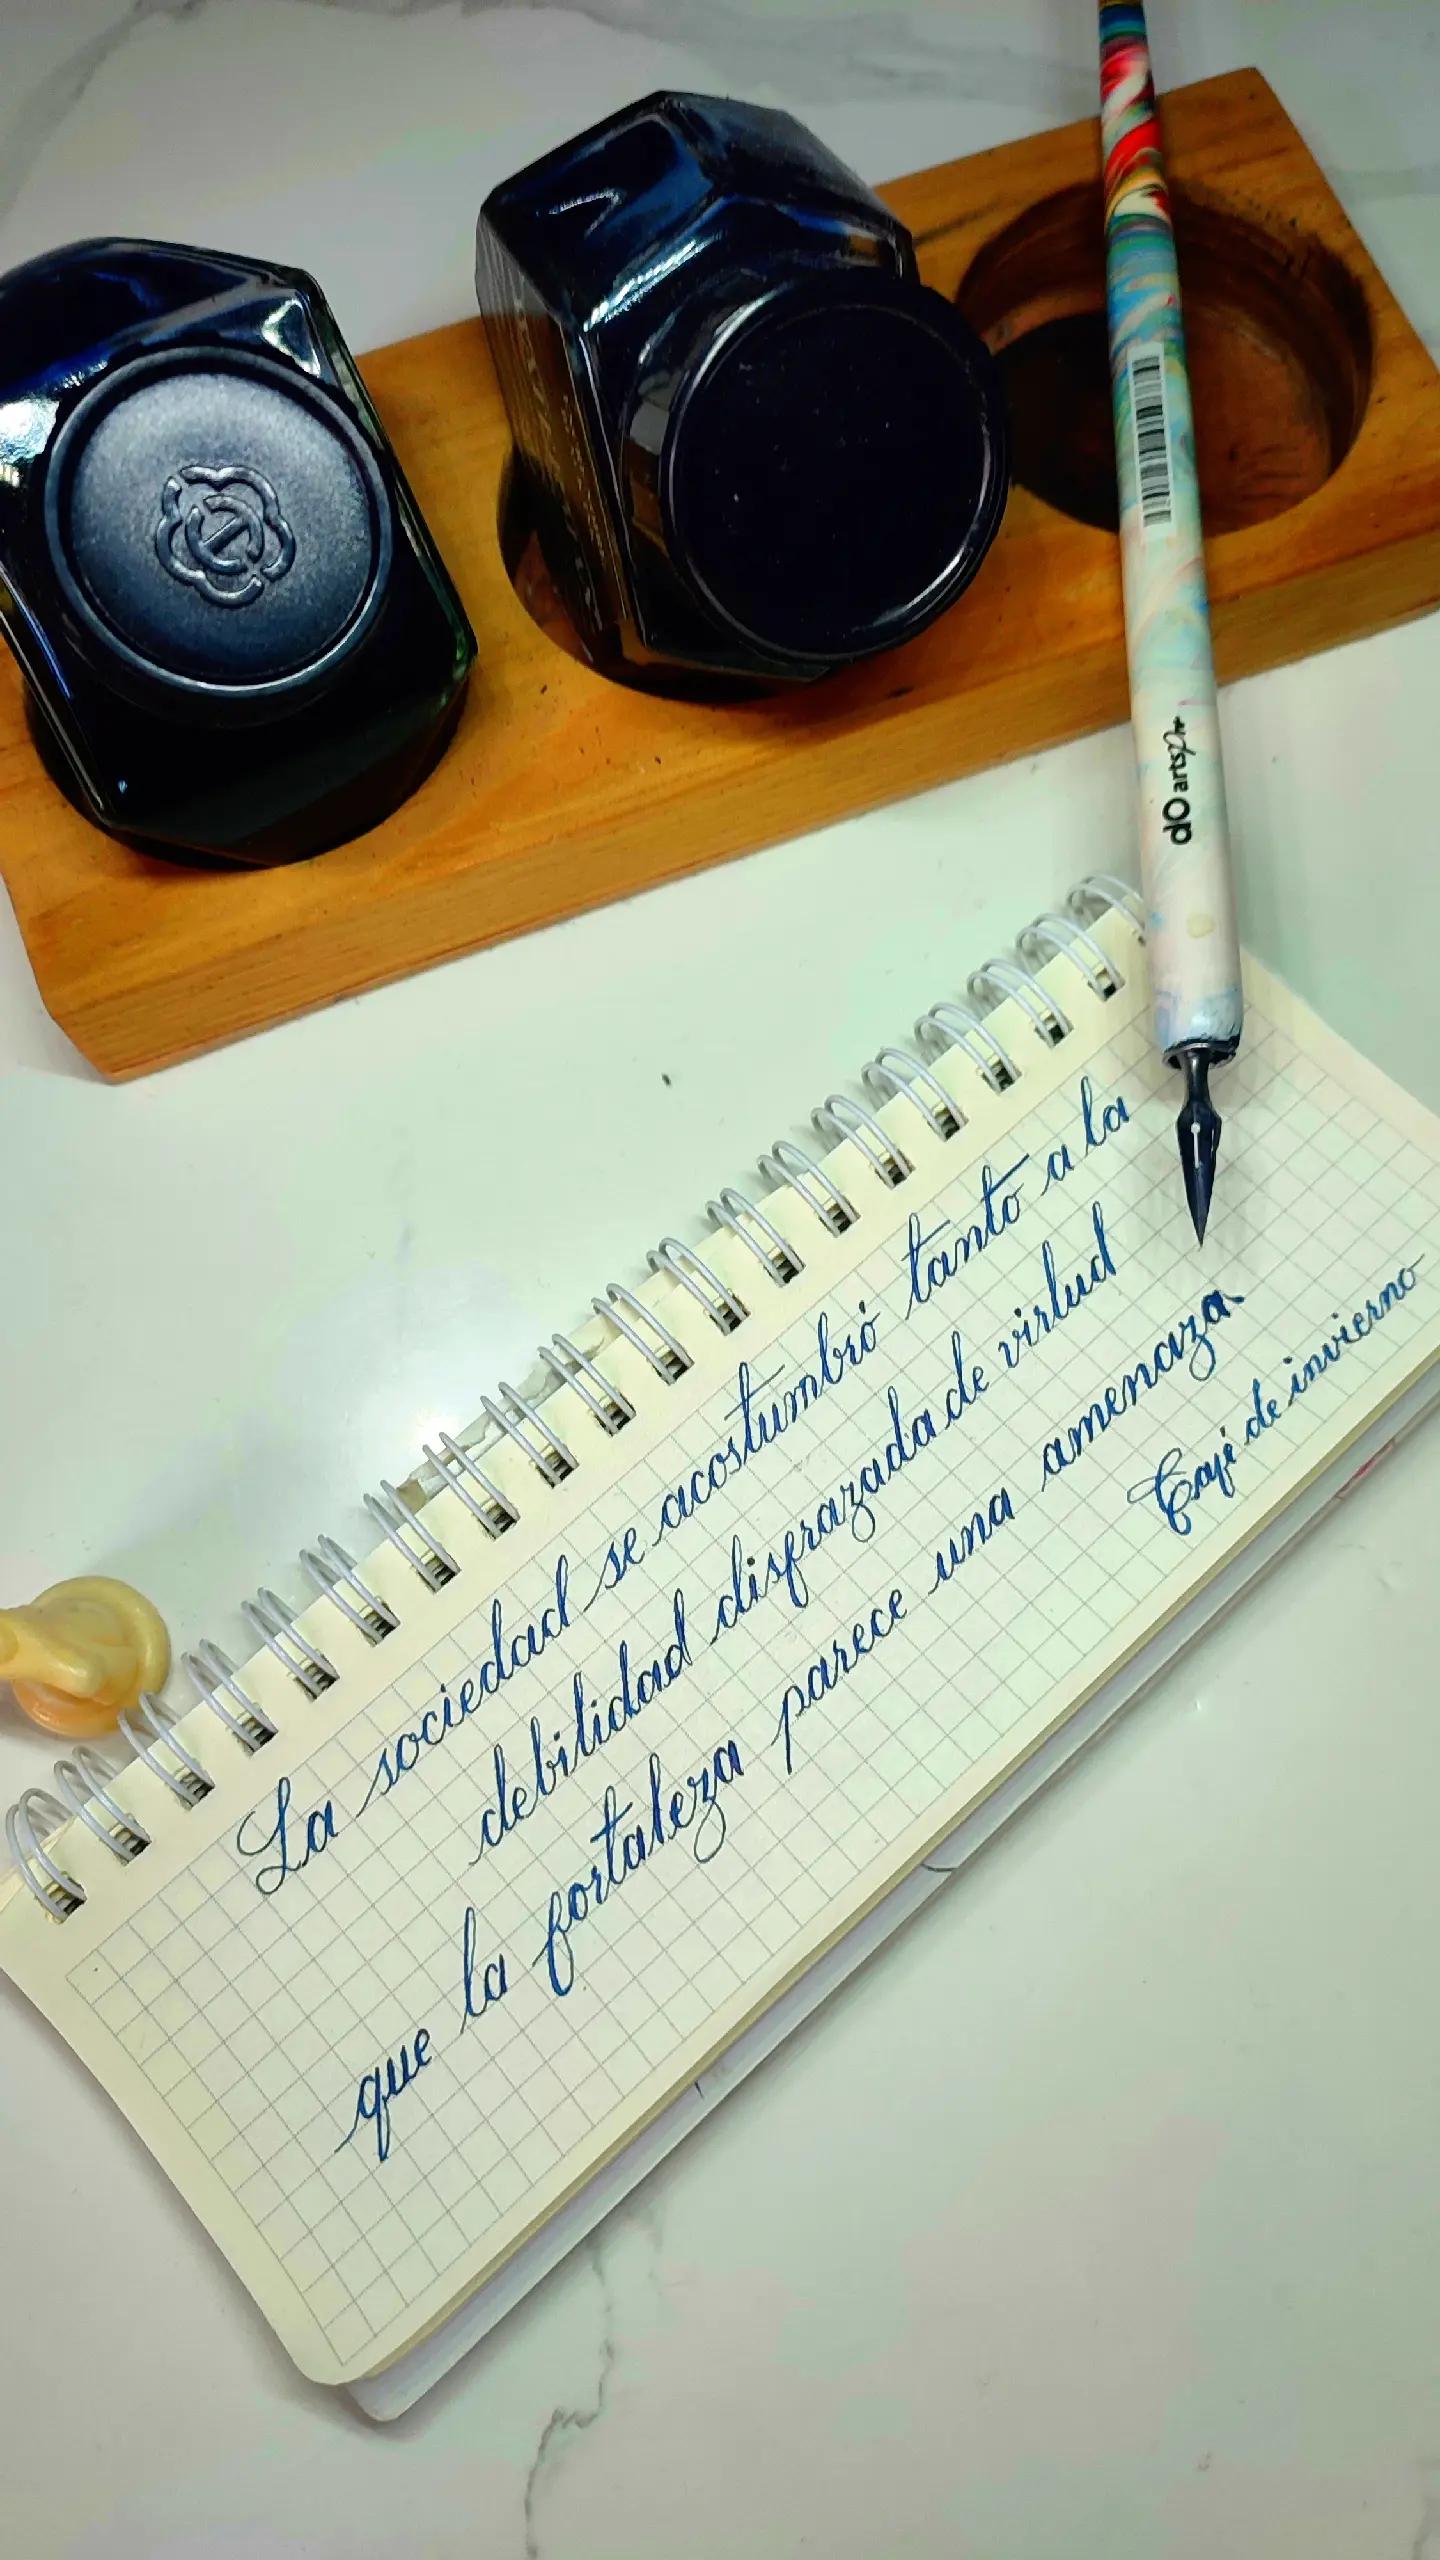 dO arts
La sociedad se acostumbró tanto a la
debilidad disfrazada de virtud
que la fortaleza parece una amenaza.
Café de invierno